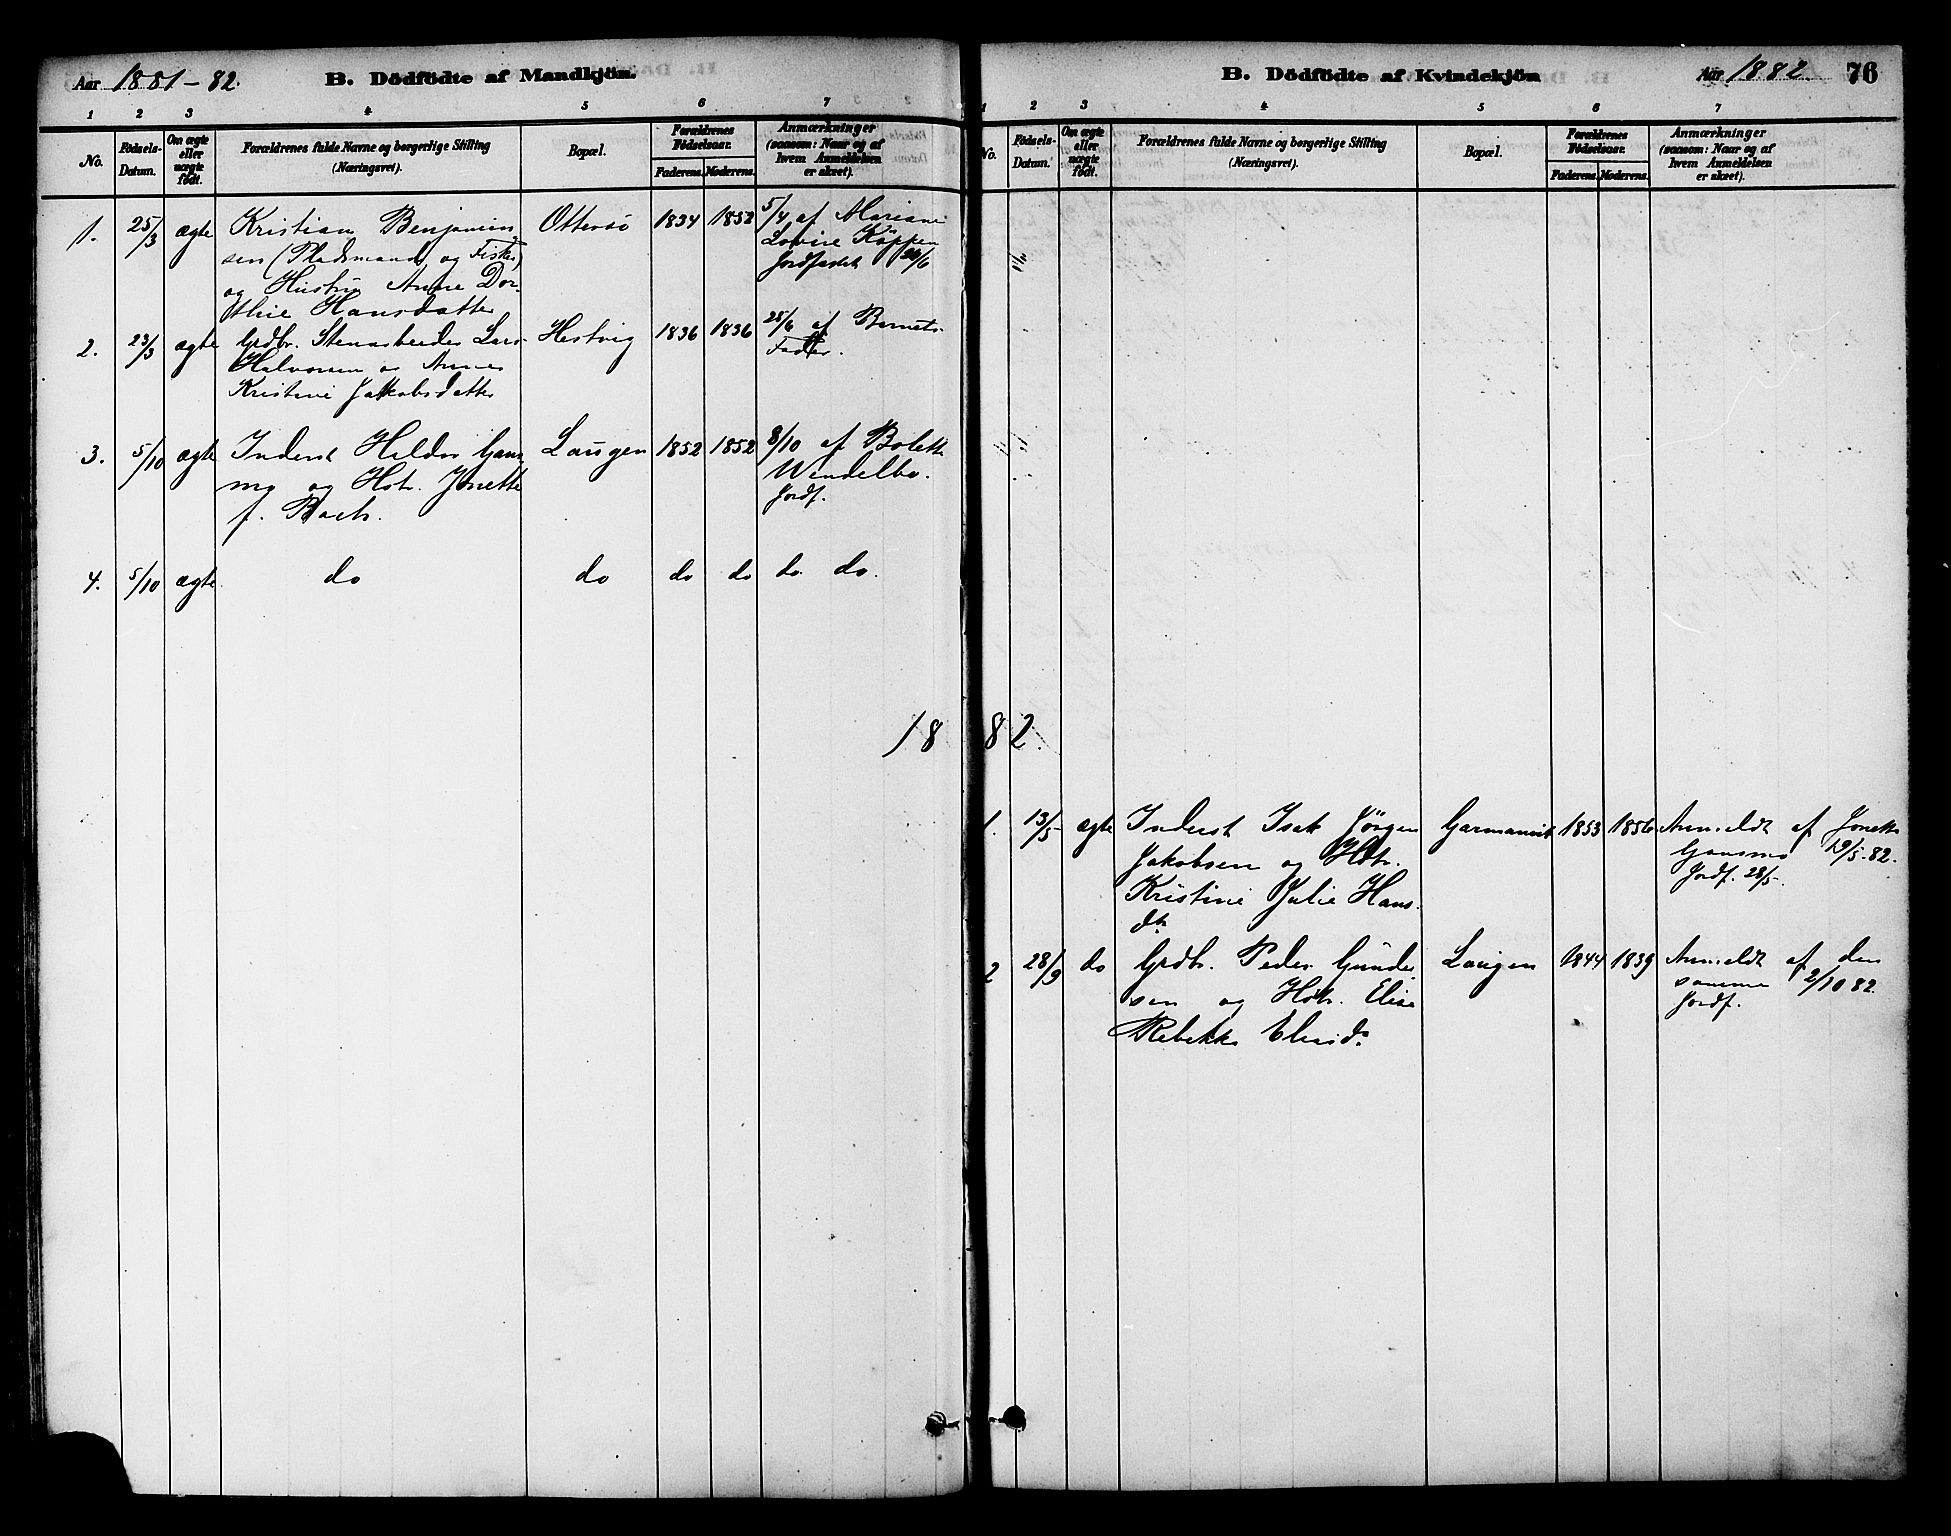 Aar 1881-82.
B. Dödfödte af Mandkjön.
1 2 3 4 5 6 7
No.
Födsels-Datum.
Om ægte eller uægte födt.
Forældrenes fulde Navne og borgerlige Stilling (Næringsvei).
Bopæl.
Forældrenes Födselsaar.
Faderens. Moderens.
Anmærkninger (saasom: Naar og af hvem Anmeldelsen er skeet).
1. 25/3 ægte Kristian Benjamin Otterso 1834 1852 5/4 af Mariane
sen (Pladsmand og Fisker) Lovise Köppen
og Hustru Anne Dor- Jordfæstet
thie Hansdatter
2. 23/3 ægte Grdbr. Stenarbeider Lars Hestvig 1836 1836 25/6 af Barnets
Halvorsen og Anne Fader.
Kristine Jakobsdatter
3. 5/10 ægte Inderst Haldor Gans Laugen 1852 1852 8/10 af Bolette
mo og Hstr. Jonette Wendelbo.
f. Bach. Jordf.
4. 5/10 ægte do do do do do do.
1882.
B. Dödfödte af Kvindekjön
Aar 1882. 76
1 2 3 4 5 6 7
No.
Födsels-Datum.
Om ægte eller uægte födt.
Forældrenes fulde Navne og borgerlige Stilling (Næringsvei).
Bopæl.
Forældrenes Födselsaar.
Faderens. Moderens.
Anmærkninger (saasom: Naar og af hvem Anmeldelsen er skeet).
1. 13/5 ægte Inderst Isak Jörgen Garmanvik 1853 1856 Anmeldt af Jonette
Jakobsen og Hstr. Gansmo 19/5-82.
Kristine Julie Hans Jordf. 28/5.
dtr
2 28/9 do Grdbr. Peder Gunder Laugen 1844 1839 Anmeldt af den
sen og Hstr. Elise samme 2/10 82.
Rebekka Eliasd. Jordf.